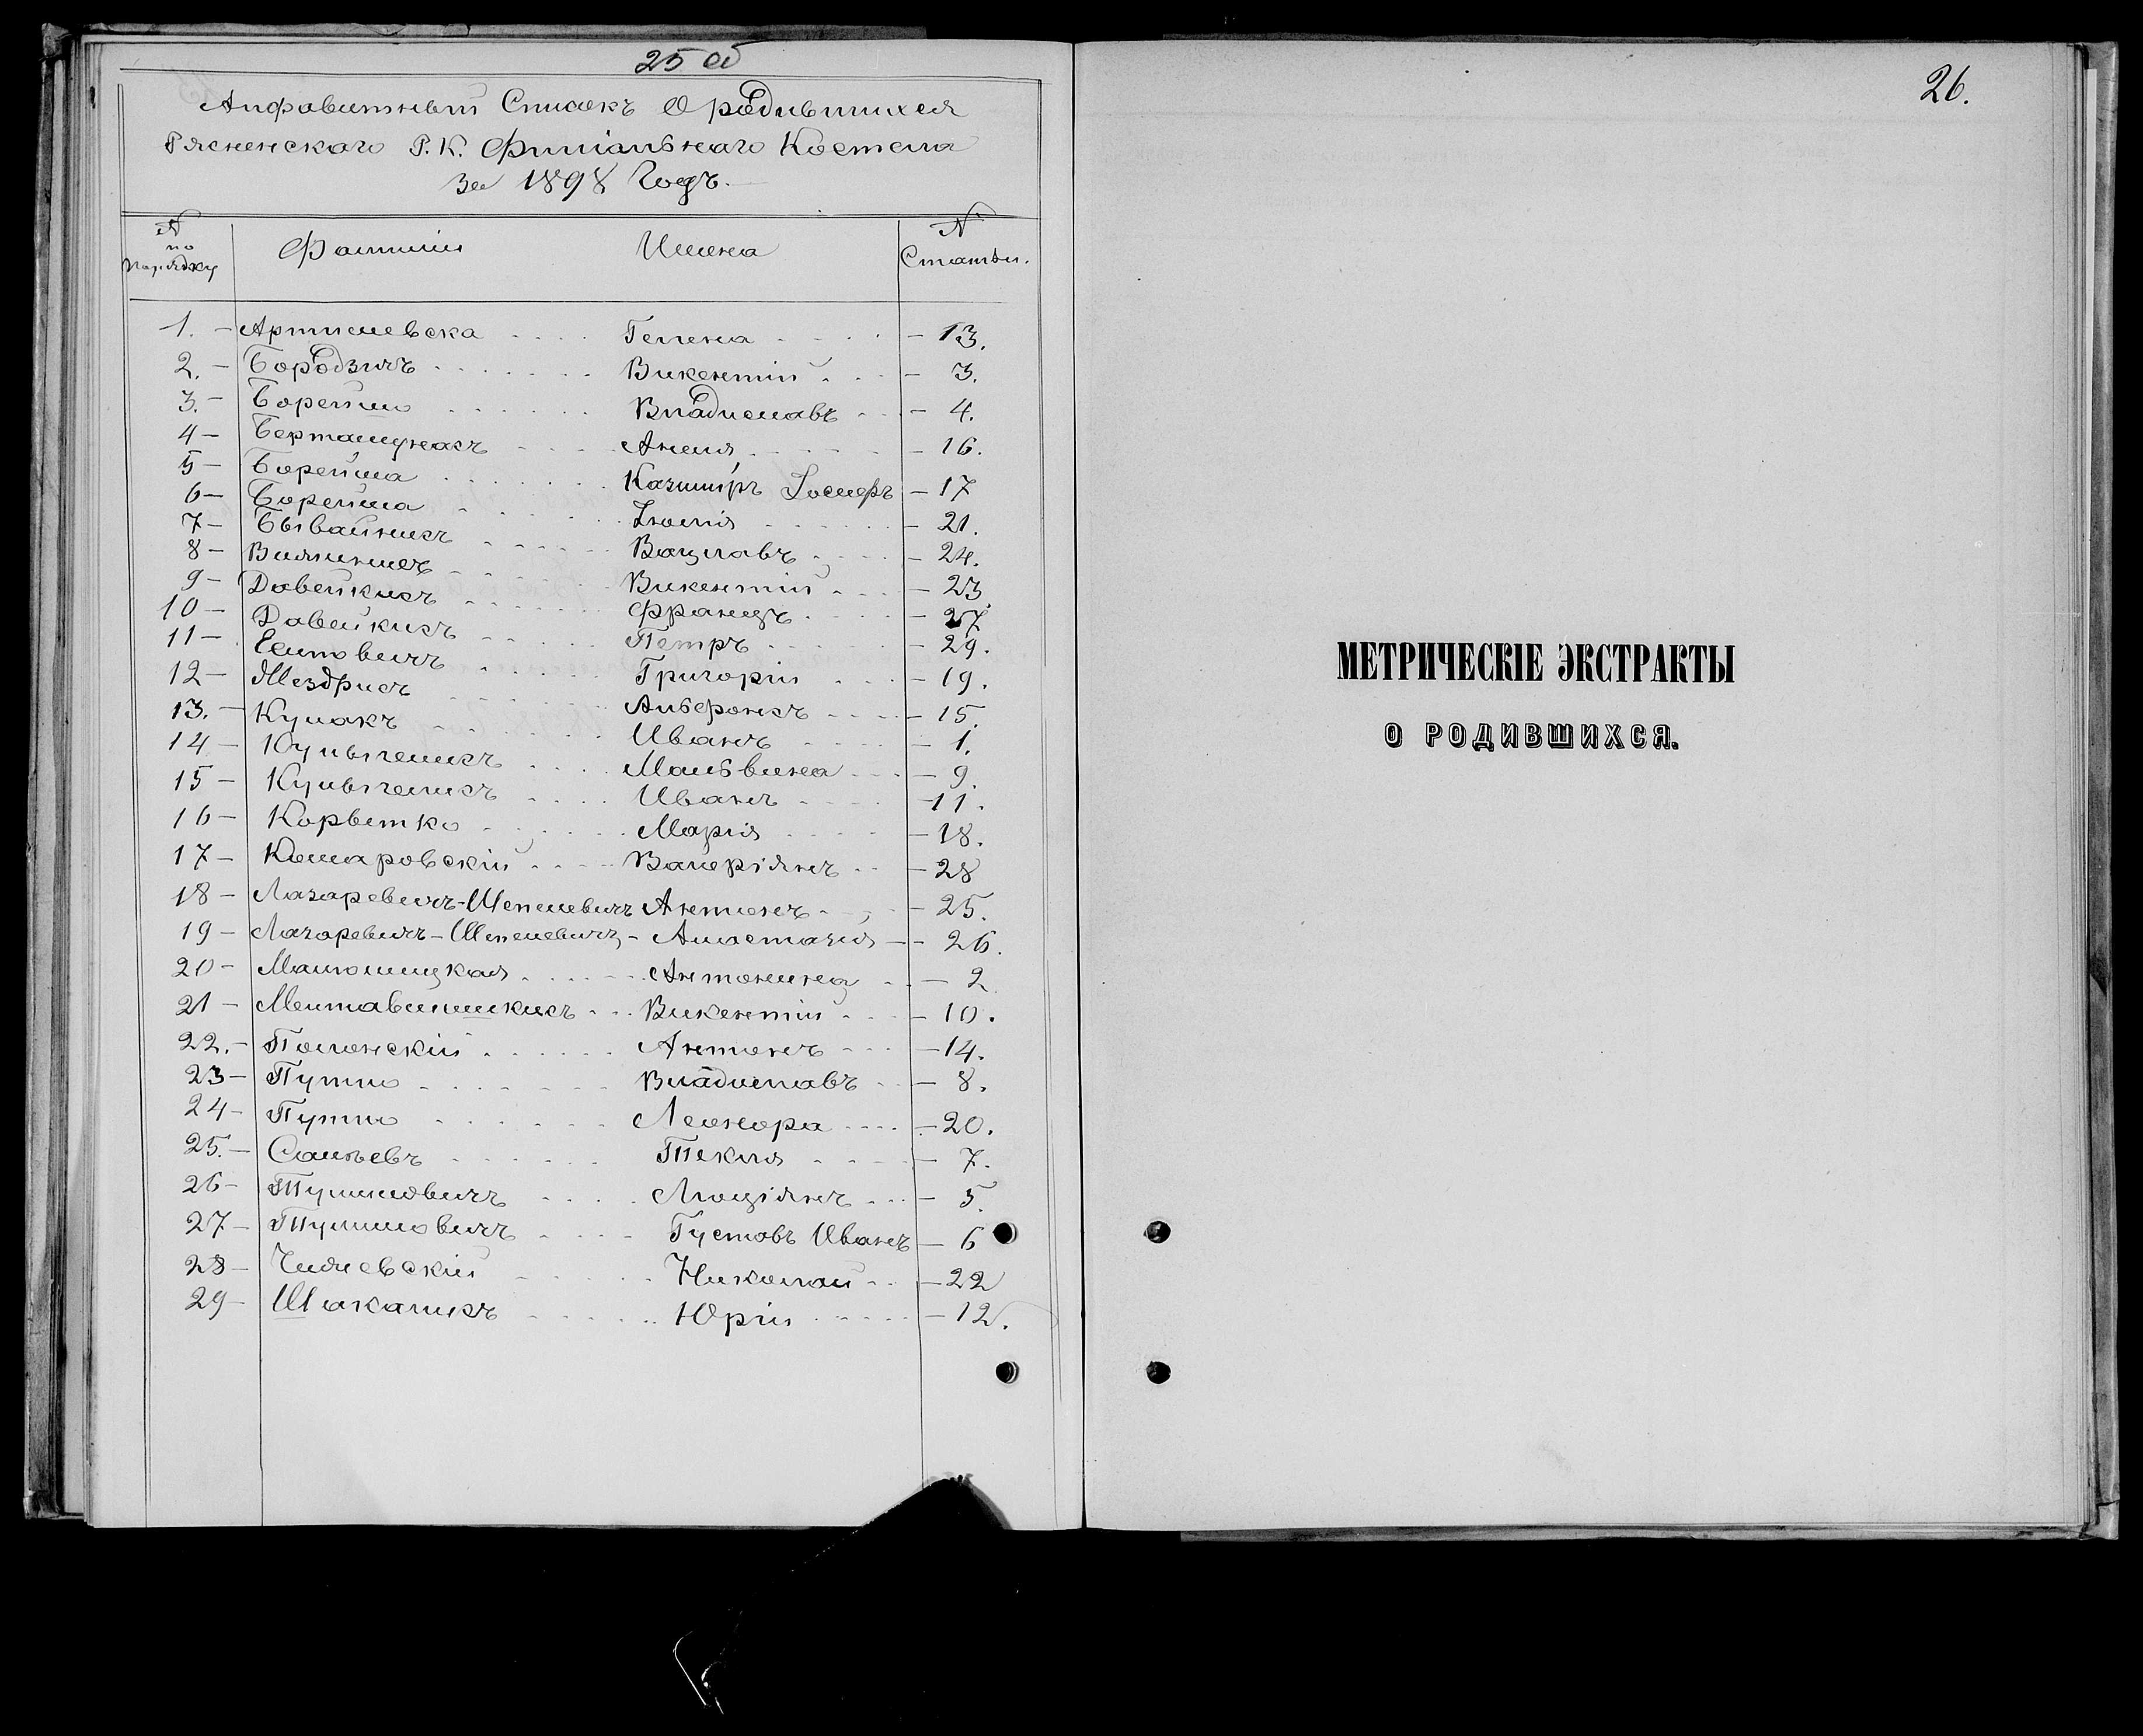 25 об
Алфавитный Списокъ О родившихся
Рясненскаго Р. К. Филіальнаго Костела
За 1898 Годъ.
№ по порядку Фамиліи Имена № Статьи.
1. – Артишевска Гелена – 13.
2. – Бородзичъ Викентій – 3.
3. – Борейшо Владиславъ – 4.
4 – Анеля – 16.
5 – Борейша Казиміръ Іосифъ – 17
6 – Борейша Зѣновія – 21.
7 – Бывайнисъ Вацлавъ – 24.
8 – Викентій – 23
9 – Довейкисъ Францъ – 27
10 – Довейкисъ Петръ – 29.
11 – Григорій – 19.
12 – Мездрисъ Альфонсъ – 15.
13. – Кулакъ Иванъ – 1.
14 – Мальвина – 9.
15 – Иванъ – 11.
16 – Корветко Марія – 18.
17 – Комаровскій Валеріянъ – 28
18 – Лазаревичъ-Шепелевичъ Антонъ – 25.
19 – Лазаревичъ-Шепелевичъ – Анастазія – 26.
20 – Антонина – 2
21 – Викентій – 10.
22. – Полонскій Антонъ – 14.
23 – Путно Владиславъ – 8.
24 – Путно Леонора – 20.
25. – Текля – 7.
26 – Люціянъ – 5.
27 – Густавъ Иванъ – 6
28 – Николай – 22
29 – Шакалисъ Юрій – 12.
26.
МЕТРИЧЕСКІЕ ЭКСТРАКТЫ
О РОДИВШИХСЯ.